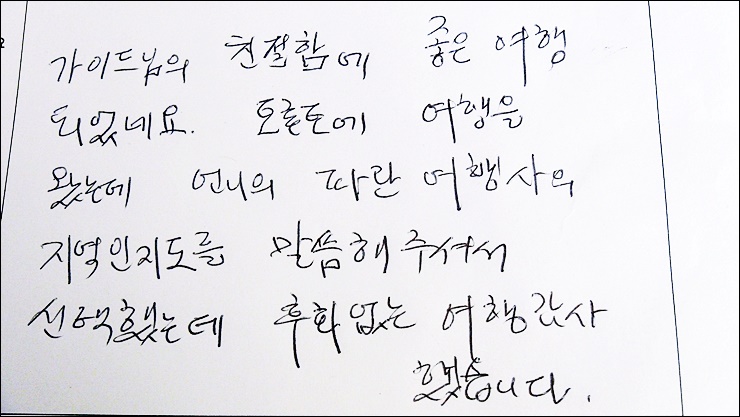 가이드님의 친절함에 좋은 여행
되었네요. 토론토에 여행을
왔는데 언니의 따란 여행사의
지역인지도를 말씀해 주셔서
선택했는데 후회없는 여행감사
했습니다.